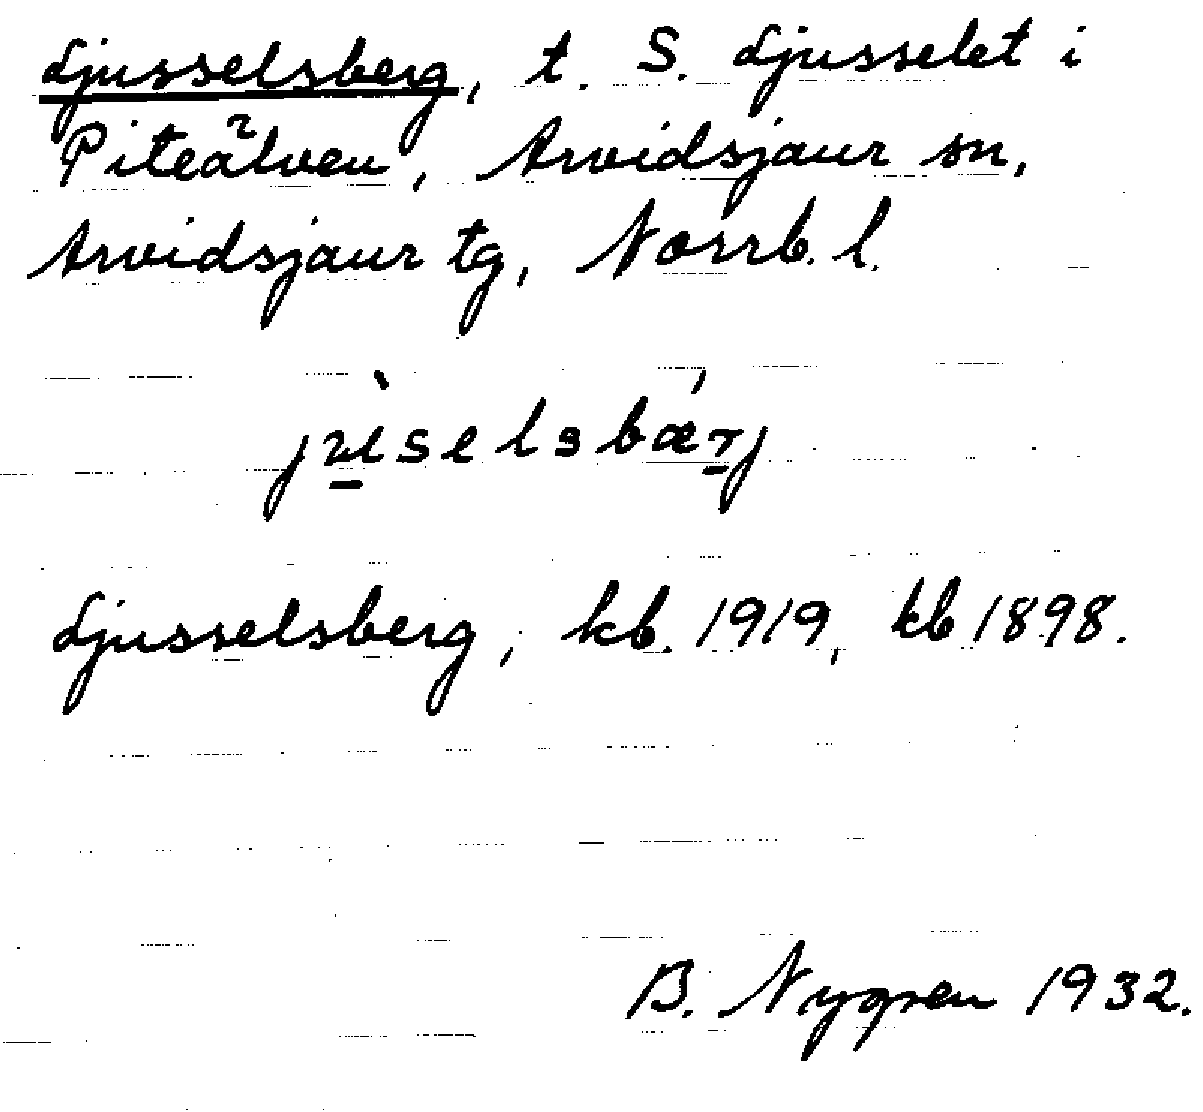 Ljusselsberg, t. S. Ljusselet i
Piteälven, Arvidsjaur sn,
Arvidsjaur tg, Norrb. l.
Ljusselsberg, kb. 1919, kb 1898.
B. Nygren 1932.